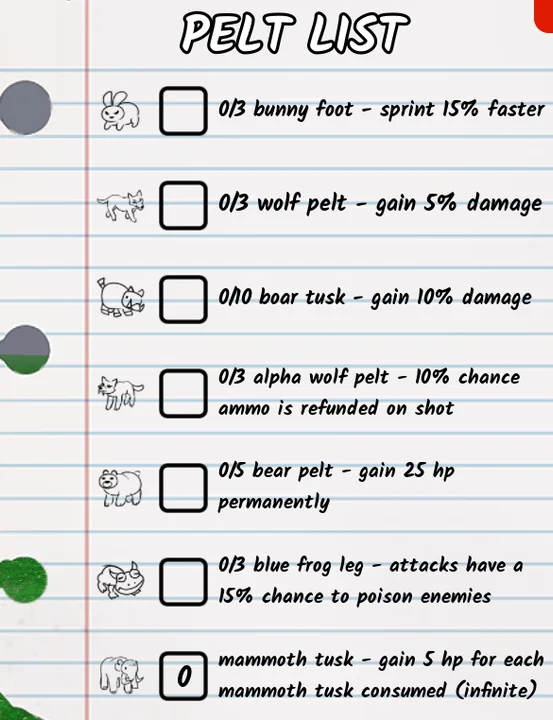 PELT LIST
0/3 bunny foot - sprint 15% faster
0/3 wolf pelt - gain 5% damage
0/10 boar tusk - gain 10% damage
0/3 alpha wolf pelt - 10% chance
ammo is refunded on shot
0/5 bear pelt - gain 25 hp
permanently
0/3 blue frog leg - attacks have a
15% chance to poison enemies
0
mammoth tusk - gain 5 hp for each
mammoth tusk consumed (infinite)